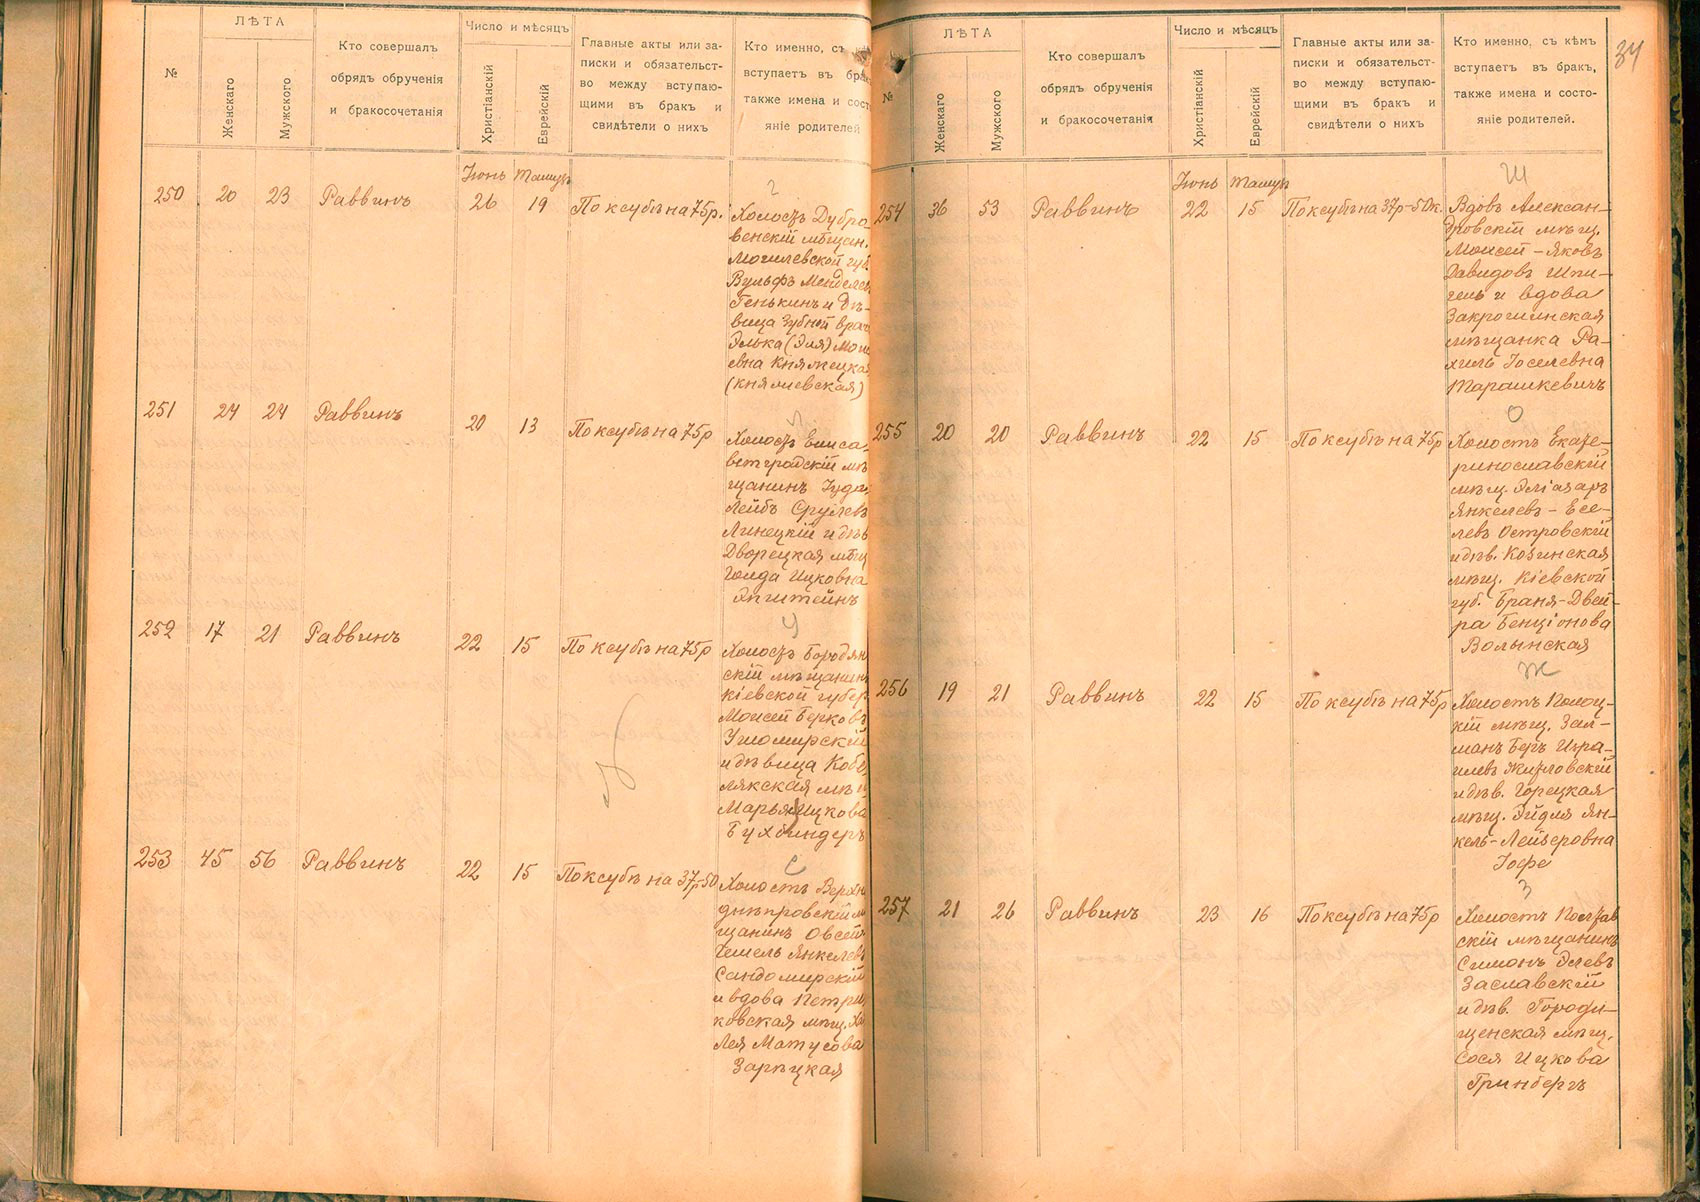 №
ЛѢТА
Женскаго
Мужского
Кто совершалъ
обрядъ обрученія
и бракосочетанія
Число и мѣсяцъ
Христіанскій
Еврейскій
Главные акты или за-
писки и обязательст-
во между вступаю-
щими въ бракъ и
свидѣтели о нихъ
Кто именно, съ
вступаетъ въ брак
также имена и сост
яніе родителей
Іюнь Тамузъ
250 20 23 Раввинъ 26 19 По ксубѣ на 75 р.
Г
Холостъ Дубро-
венскій мѣщан.
Могилевской губ
Вульфъ Менделев
Генькинъ и дѣ-
вица зубной врач
Элька (Эля) Мои
евна Княжецкая
(Княжевская)
251 24 24 Раввинъ 20 13 По ксубѣ на 75 р
Л
Холостъ Елиса-
ветградскій мѣ
щанинъ Іуда
Лейбъ Срулевъ
Линецкій и дѣв
Дворецкая мѣщ
Голда Ицковна
Эпштейнъ
252 17 21 Раввинъ 22 15 По ксубѣ на 75 р
У
Холостъ Бородян
скій мѣщанинъ
Кіевской губер
Моисей Берковъ
Ушомирскій
и дѣвица Кобе
лякская мѣщ
Марья Ицкова
Бухбиндеръ
253 45 56 Раввинъ 22 15 По ксубѣ на 37 р-50
С
Холостъ Верхне
днѣпровскій м
щанинъ Овсей
Хемель Янкелевъ
Сандомирскій
и вдова Петри
ковская мѣщ. Ха
Лея Матусова
Зарѣцкая
34
№
ЛѢТА
Женскаго
Мужского
Кто совершалъ
обрядъ обрученія
и бракосочетанія
Число и мѣсяцъ
Христіанскій
Еврейскій
Главные акты или за-
писки и обязательст-
во между вступаю-
щими въ бракъ и
свидѣтели о нихъ
Кто именно, съ кѣмъ
вступаетъ въ бракъ,
также имена и состо-
яніе родителей.
Іюнь Тамузъ
254 36 53 Раввинъ 22 15 По ксубѣ на 37 р-50 к.
Ш
Вдовъ Алексан-
дровскій мѣщ.
Моисей-Яковъ
Давидовъ Шпи-
гель и вдова
Закрочинская
мѣщанка Ра-
хиль Іоселевна
Тарашкевичъ
255 20 20 Раввинъ 22 15 По ксубѣ на 75 р
О
Холостъ Екате-
ринославскій
мѣщ. Эліазаръ
Янкелевъ-Есе-
левъ Островскій
и дѣв. Козинская
мѣщ. Кіевской
губ. Браня-Двей-
ра Бенціонова
Волынская
256 19 21 Раввинъ 22 15 По ксубѣ на 75 р
Ж
Холостъ Полоц-
кій мѣщ. Зал-
манъ Беръ Изра-
илевъ Житловскій
и дѣв. Горецкая
мѣщ. Эйдля Ян-
кель-Лейзеровна
Іофе
257 21 26 Раввинъ 23 16 По ксубѣ на 75 р
З
Холостъ Полтав
скій мѣщанинъ
Симонъ Элевъ
Заславскій
и дѣв. Городи-
щенская мѣщ.
Сося Ицкова
Гринбергъ